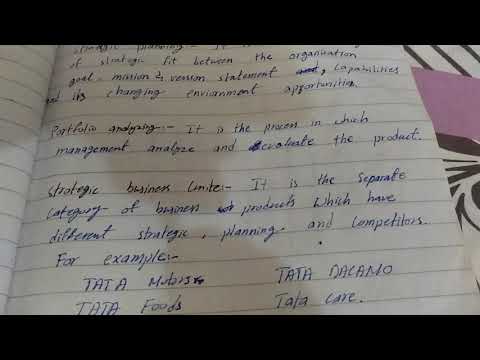 strategic planning:- It is
of strategic fit between the organization
goal, mission & vession statement, capabilities
and its changing envianment opportunities.
Portfolio analyzing:- It is the process in which
management analyze and evaluate the product.
Strategic business Unite:- It is the separate
Category of business products which have
different strategic, planning and Competitors.
For example:-
TATA Motors
TATA DACAMO
TATA Foods
Tata care.